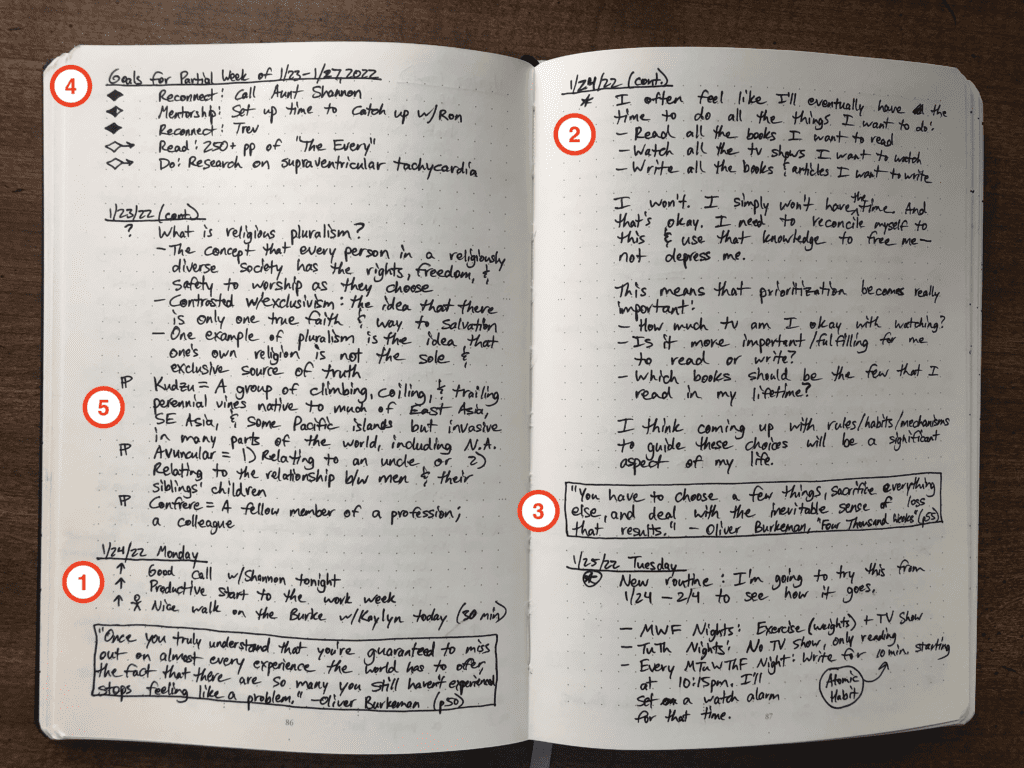 4
Goals for Partial Week of 1/23-1/27, 2022
Reconnect: Call Aunt Shannon
Mentorship: Set up time to catch up w/Ron
Reconnect: Trev
Read: 250+ pp of "The Every"
Do: Research on supraventricular tachycardia
1/23/22 (cont.)
? What is religious pluralism?
- The concept that every person in a religiously
diverse society has the rights, freedom, &
safety to worship as they choose
- Contrasted w/exclusivism: the idea that there
is only one true faith & way to salvation
- One example of pluralism is the idea that
one's own religion is not the sole &
exclusive source of truth
5
Kudzu = A group of climbing, coiling, & trailing
perennial vines native to much of East Asia,
SE Asia, & some Pacific islands but invasive
in many parts of the world, including N.A.
Avuncular = 1) Relating to an uncle or 2)
Relating to the relationship b/w men & their
siblings' children
Confrere = A fellow member of a profession;
a colleague
1/24/22 Monday
1
↑ Good call w/Shannon tonight
↑ Productive start to the work week
↑ Nice walk on the Burke w/Kaylyn today (30 min)
"Once you truly understand that you're guaranteed to miss
out on almost every experience the world has to offer,
the fact that there are so many you still haven't experienced
stops feeling like a problem." -Oliver Burkeman (p50)
86
1/24/22 (cont.)
2
* I often feel like I'll eventually have the
time to do all the things I want to do:
- Read all the books I want to read
- Watch all the tv shows I want to watch
- Write all the books & articles I want to write
I won't. I simply won't have the time. And
that's okay. I need to reconcile myself to
this & use that knowledge to free me-
not depress me.
This means that prioritization becomes really
important:
- How much tv am I okay with watching?
- Is it more important/fulfilling for me
to read or write?
- Which books should be the few that I
read in my lifetime?
I think coming up with rules/habits/mechanisms
to guide these choices will be a significant
aspect of my life.
3
"You have to choose a few things, sacrifice everything
else, and deal with the inevitable sense of loss
that results." - Oliver Burkeman, "Four Thousand Weeks" (p55)
1/25/22 Tuesday
* New routine: I'm going to try this from
1/24-2/4 to see how it goes.
- MWF Nights: Exercise (weights) + TV Show
- TuTh Nights: No TV Show, only reading
- Every MTuWThF Night: Write for 10 min. starting
at 10:15pm. I'll
set a watch alarm
for that time.
Atomic
Habit
87